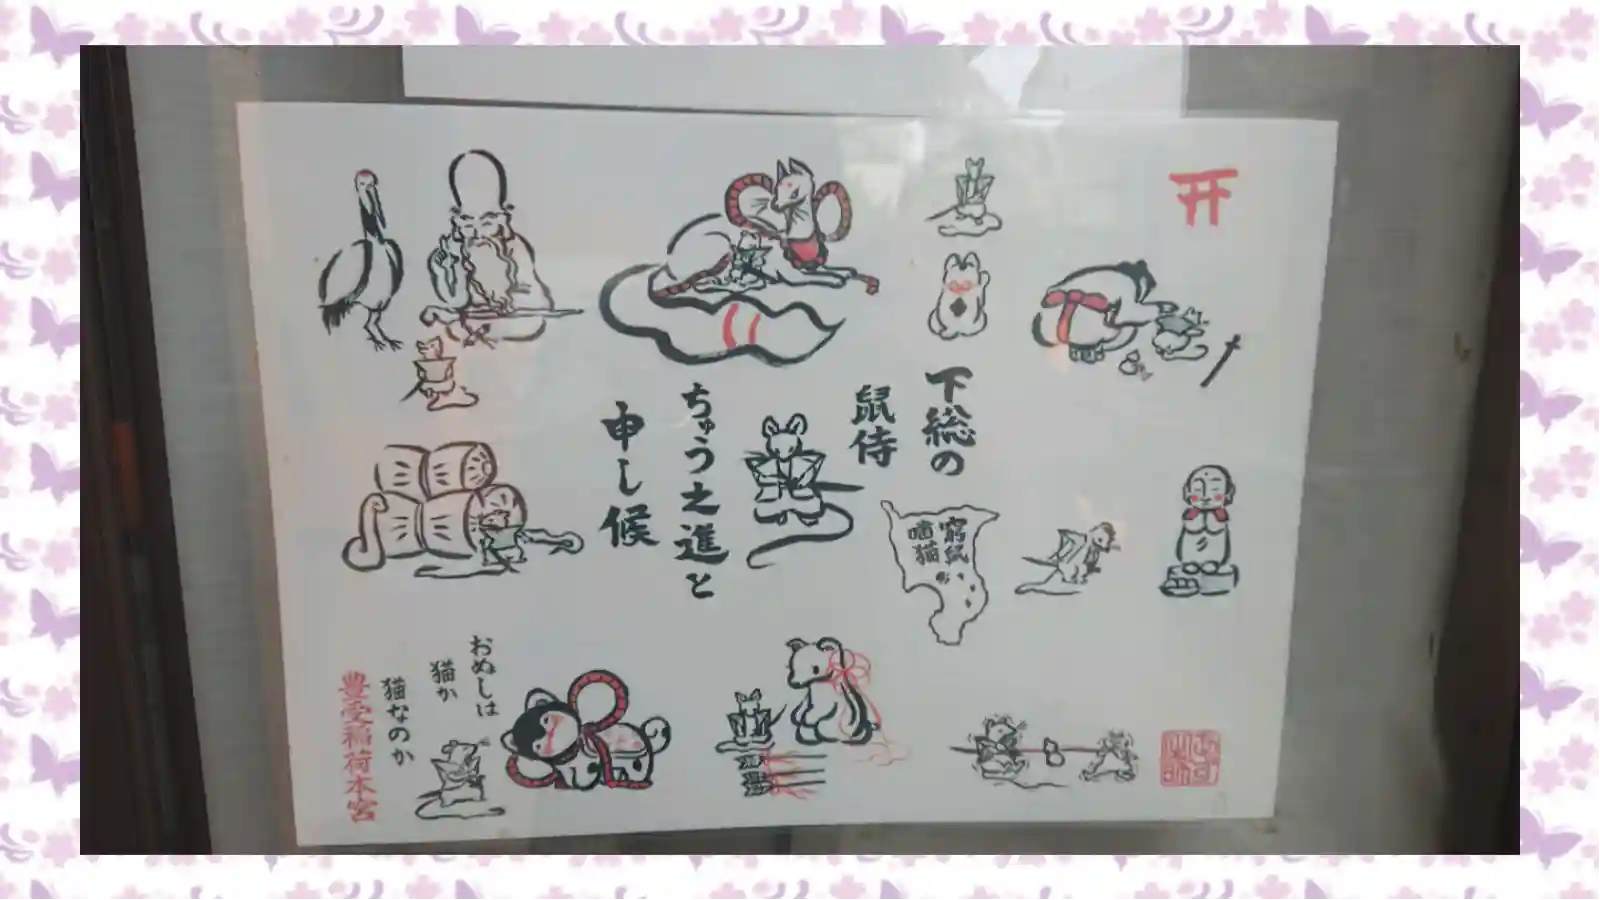 下総の
鼠侍
ちゅう之進と
申し候
窮鼠
噛猫
おぬしは
猫か
猫なのか
豊受稲荷本宮